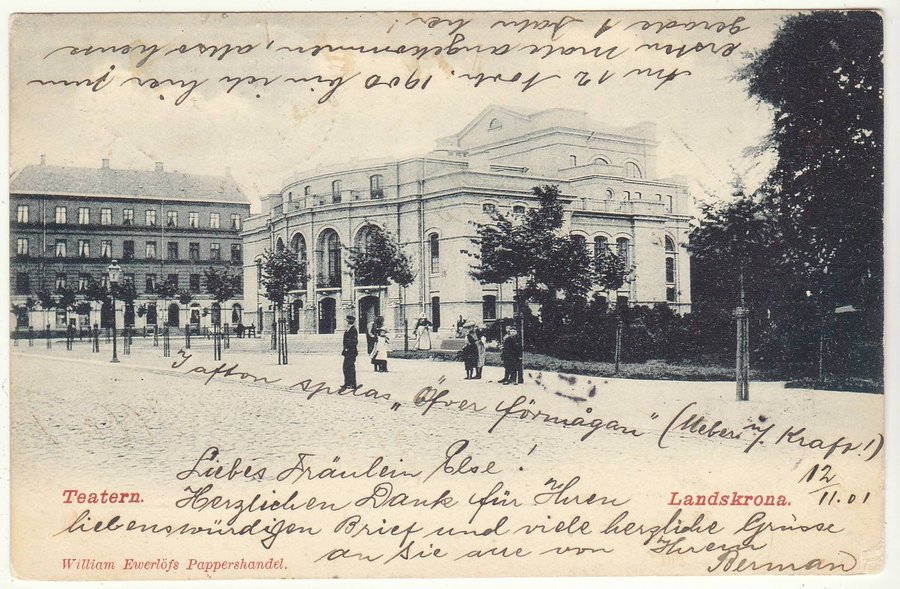 Am 12 Novb. 1900 bin ich hier zum
ersten Male angekommen, also heute
gerade 1 Jahr her!
I afton spelas „Öfver förmågan" (Ueber m/ Kraft!)
12/11.01
Liebes Fräulein Else!
Teatern.
Landskrona.
Herzlichen Dank für Ihren
liebenswürdigen Brief und viele herzliche Grüsse
an Sie alle von Ihrem
Berman
William Ewerlöfs Pappershandel.